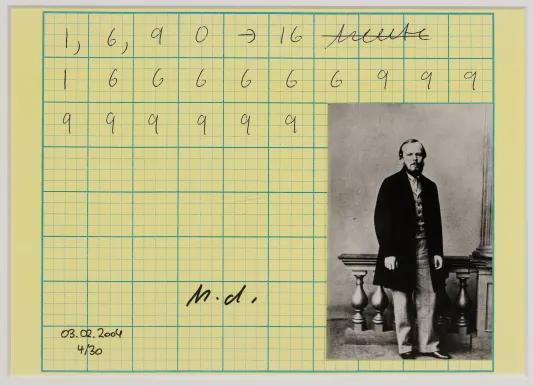 1, 6, 9 0 → 16
1 6 6 6 6 6 6 9 9 9
9 9 9 9 9 9
h.d.
03.02.2004
4/30